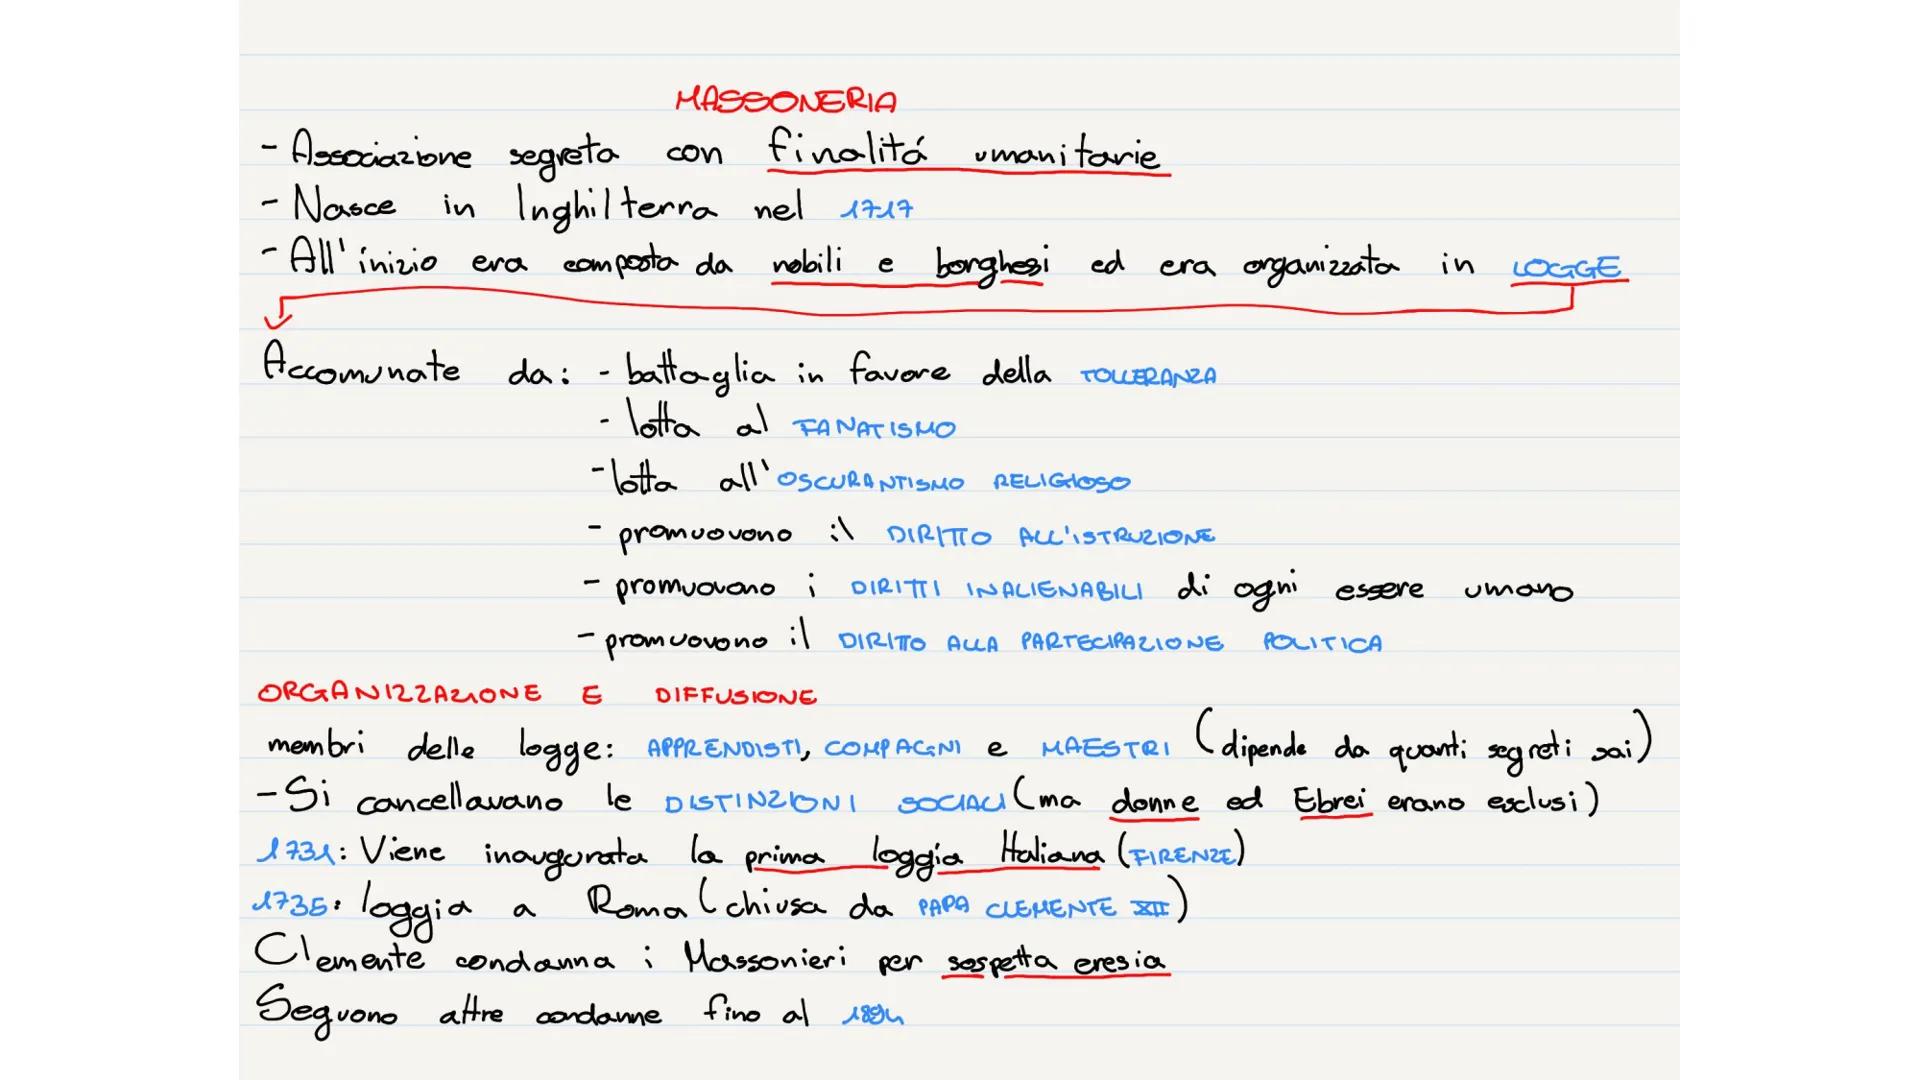 MASSONERIA
- Associazione segreta con finalitá umanitarie
- Nasce in Inghilterra nel 1717
- All'inizio era composta da nobili e borghesi ed era organizzata in LOGGE
Accomunate da: - battaglia in favore della TOLLERANZA
- lotta al FANATISMO
- lotta all'OSCURANTISMO RELIGIOSO
- promuovono il DIRITTO ALL'ISTRUZIONE
- promuovono i DIRITTI INALIENABILI di ogni essere umano
- promuovono il DIRITTO ALLA PARTECIPAZIONE POLITICA
ORGANIZZAZIONE E DIFFUSIONE
membri delle logge: APPRENDISTI, COMPAGNI e MAESTRI (dipende da quanti segreti sai)
- Si cancellavano le DISTINZIONI SOCIALI (ma donne ed Ebrei erano esclusi)
1731: Viene inaugurata la prima loggia Italiana (FIRENZE)
1735: loggia a Roma (chiusa da PAPA CLEMENTE XII)
Clemente condanna i Massonieri per sospetta eresia
Seguono altre condanne fino al 1894